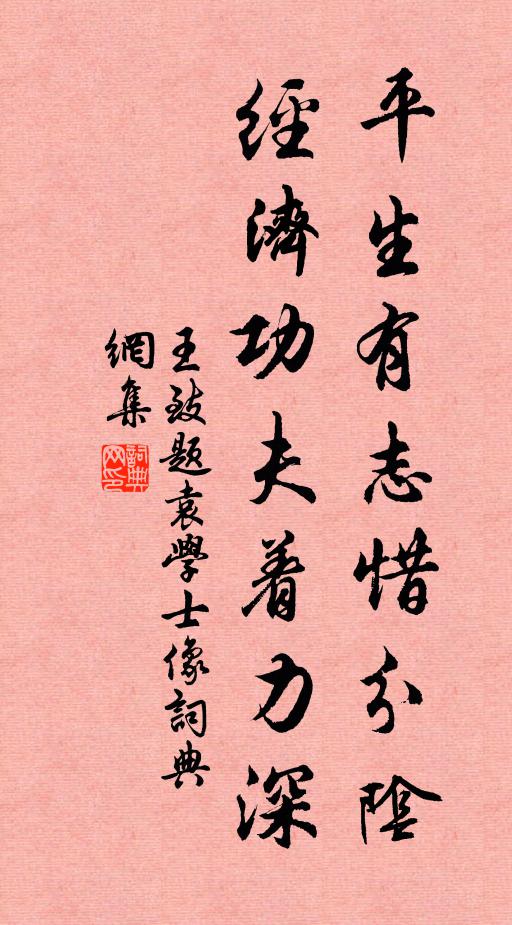 平生有志惜分陰
經濟功夫着力深
王致題袁學士像詞典
網集
詞典網印